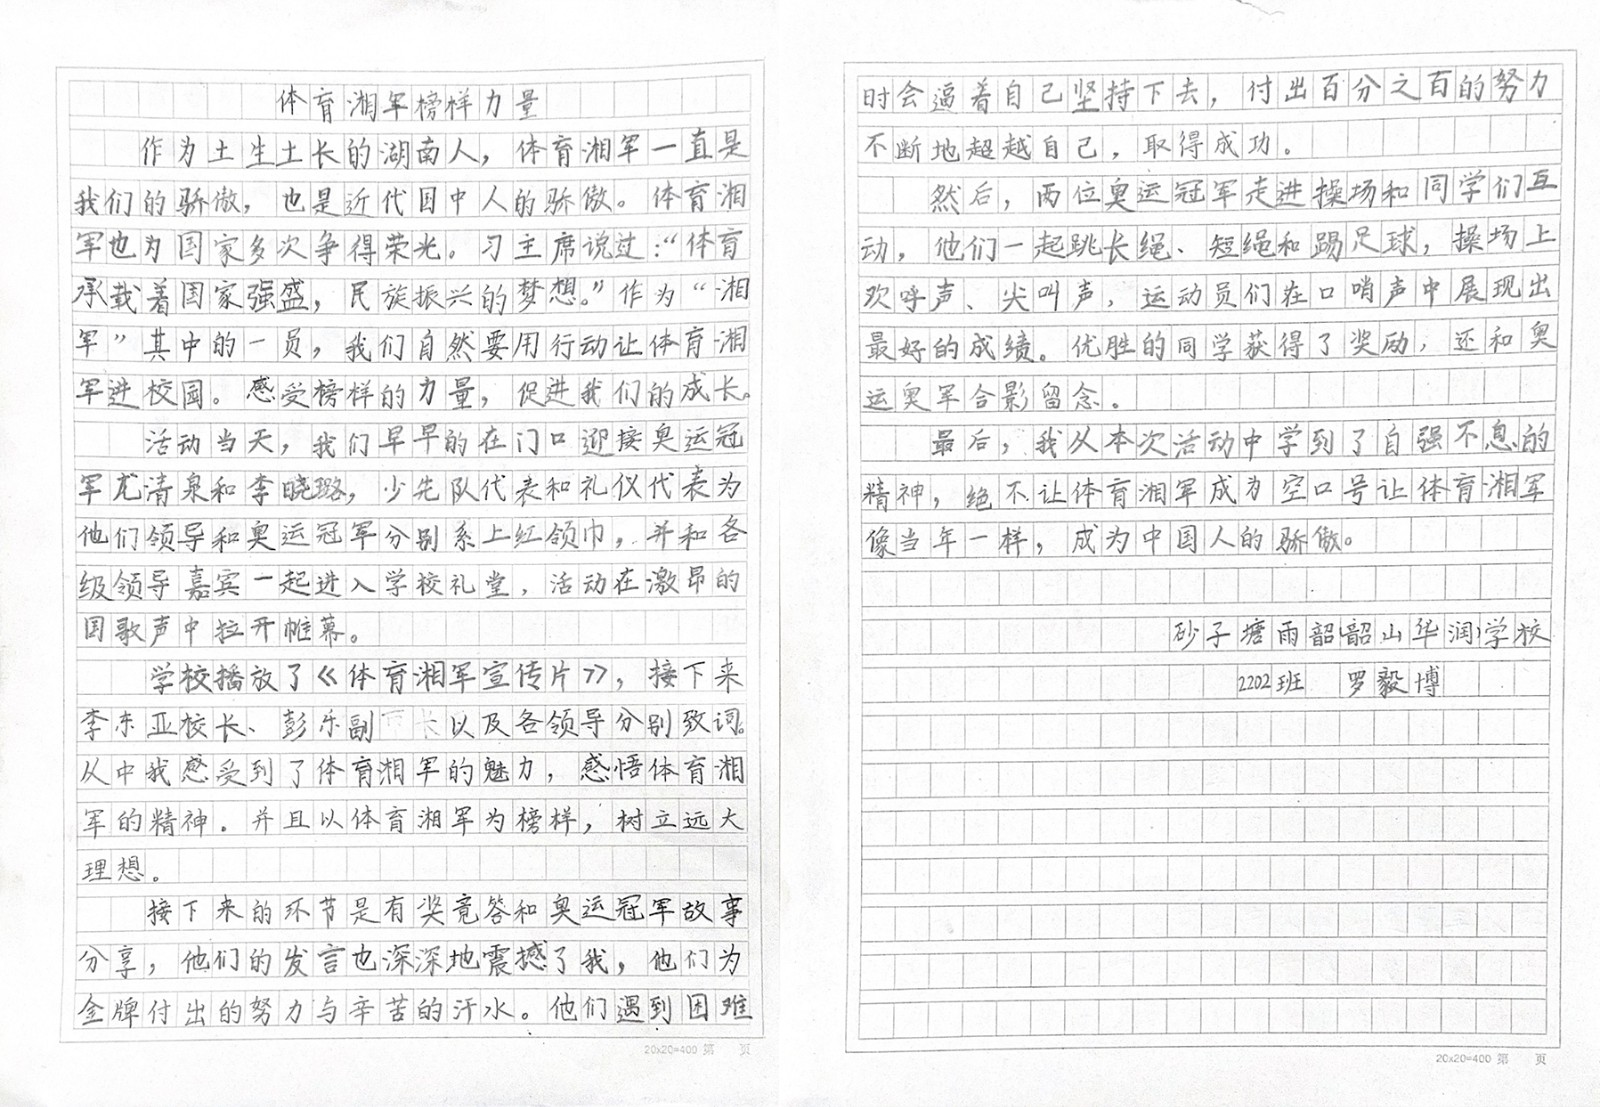 体育湘军榜样力量
作为土生土长的湖南人，体育湘军一直是
我们的骄傲，也是近代国中人的骄傲。体育湘
军也为国家多次争得荣光。习主席说过：“体育
承载着国家强盛，民族振兴的梦想。”作为“湘
军”其中的一员，我们自然要用行动让体育湘
军进校园。感受榜样的力量，促进我们的成长。
活动当天，我们早早的在门口迎接奥运冠
军龙清泉和李晓璐，少先队代表和礼仪代表为
他们领导和奥运冠军分别系上红领巾，并和各
级领导嘉宾一起进入学校礼堂，活动在激昂的
国歌声中拉开帷幕。
学校播放了《体育湘军宣传片》，接下来
李东亚校长、彭乐副 长以及各领导分别致词。
从中我感受到了体育湘军的魅力，感悟体育湘
军的精神。并且以体育湘军为榜样，树立远大
理想。
接下来的环节是有奖竟答和奥运冠军故事
分享，他们的发言也深深地震撼了我，他们为
金牌付出的努力与辛苦的汗水。他们遇到困难
20x20=400 第 页
时会逼着自己坚持下去，付出百分之百的努力
不断地超越自己，取得成功。
然后，两位奥运冠军走进操场和同学们互
动，他们一起跳长绳、短绳和踢足球，操场上
欢呼声、尖叫声，运动员们在口哨声中展现出
最好的成绩。优胜的同学获得了奖励，还和奥
运奥军合影留念。
最后，我从本次活动中学到了自强不息的
精神，绝不让体育湘军成为空口号让体育湘军
像当年一样，成为中国人的骄傲。
砂子塘雨韶韶山华润学校
2202班 罗毅博
20x20=400 第 页